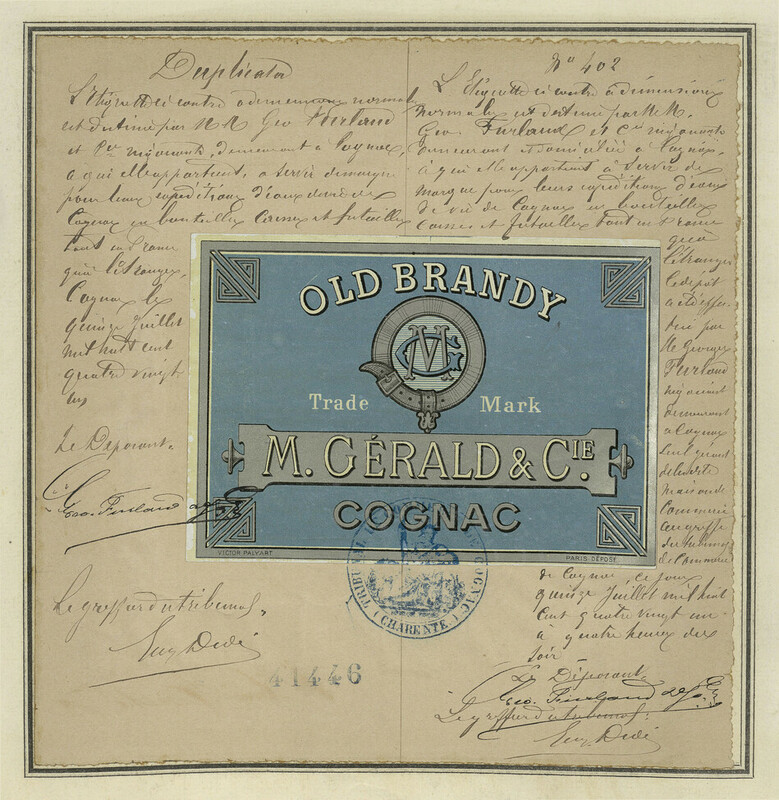 Duplicata
L'Etiquette ci contre a dimensions normales
est destinée par MM Geo Furlaud
et Cie négociants, demeurant à Cognac,
à qui elle appartient, à servir de marque
pour leurs expéditions d'eaux de vie de
Cognac en bouteilles Caisses et futailles
tant en France
qu'à l'étranger.
Cognac le
quinze Juillet
mil huit cent
quatre vingt
un
Le Déposant.
Geo. Furlaud & Co
Le greffier du tribunal.
Eug Dedé
41446
No 402
L'Etiquette ci contre a dimensions
normales est destinée par MM.
Geo. Furlaud et Cie négociants
demeurant et domiciliés à Cognac,
à qui elle appartient à servir de
marque pour leurs expéditions d'eaux
de vie de Cognac en bouteilles
Caisses et futailles tant en France
qu'à
l'étranger
le dépôt
a été effec-
tué par
M Georges
Furlaud
négociant
demeurant
à Cognac
seul gérant
de la dite
maison de
Commerce
au greffe
du tribunal
de Commerce
de Cognac, ce jour
quinze Juillet mil huit
cent quatre vingt un
à quatre heures du
soir
Le Déposant.
Geo. Furlaud & Co
Le greffier du tribunal.
Eug Dedé
OLD BRANDY
MG
Trade Mark
M. GÉRALD & CIE.
COGNAC
VICTOR PALYART
PARIS DÉPOSÉ
TRIBUNAL DE COGNAC
(CHARENTE)